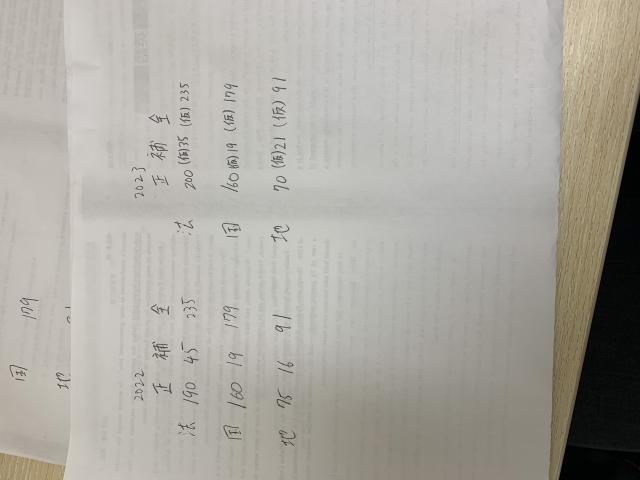 2022
正 補 全
法 190 45 235
国 160 19 179
地 75 16 91
2023
正 補 全
法 200 (仮)35 (仮)235
国 160 (仮)19 (仮)179
地 70 (仮)21 (仮)91
国 179
地